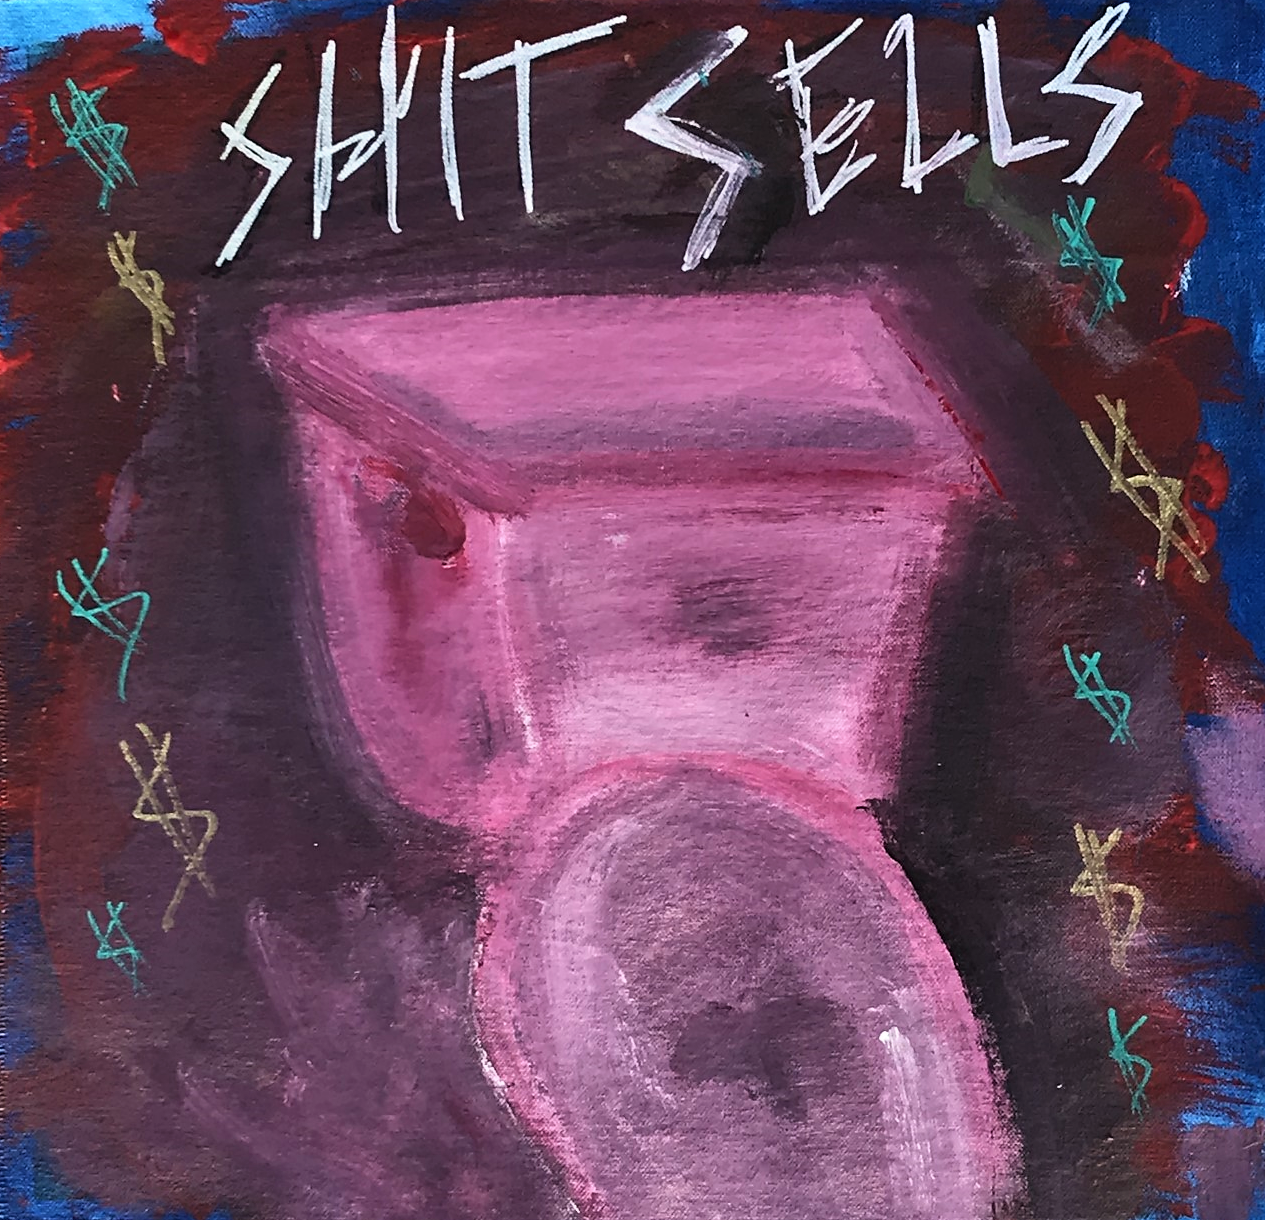 SHIT SELLS
$
$
$
$
$
$
$
$
$
$